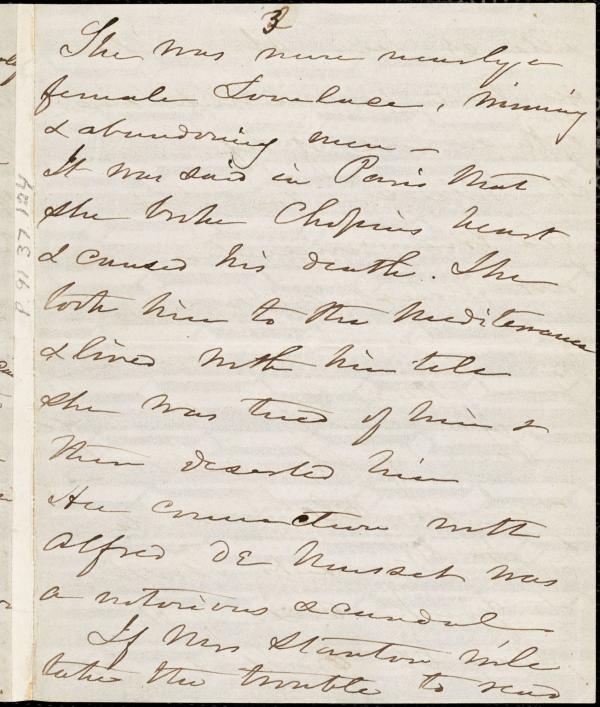 3
She was more nearly a
female Lovelace, winning
& abandoning men –
It was said in Paris that
she broke Chopins heart
& caused his death. She
took him to the Mediterranean
& lived with him till
she was tired of him &
then deserted him
Her connection with
Alfred DE Musset was
a notorious scandal
If Mrs Stanton will
take the trouble to read
P. 91. 37. 124